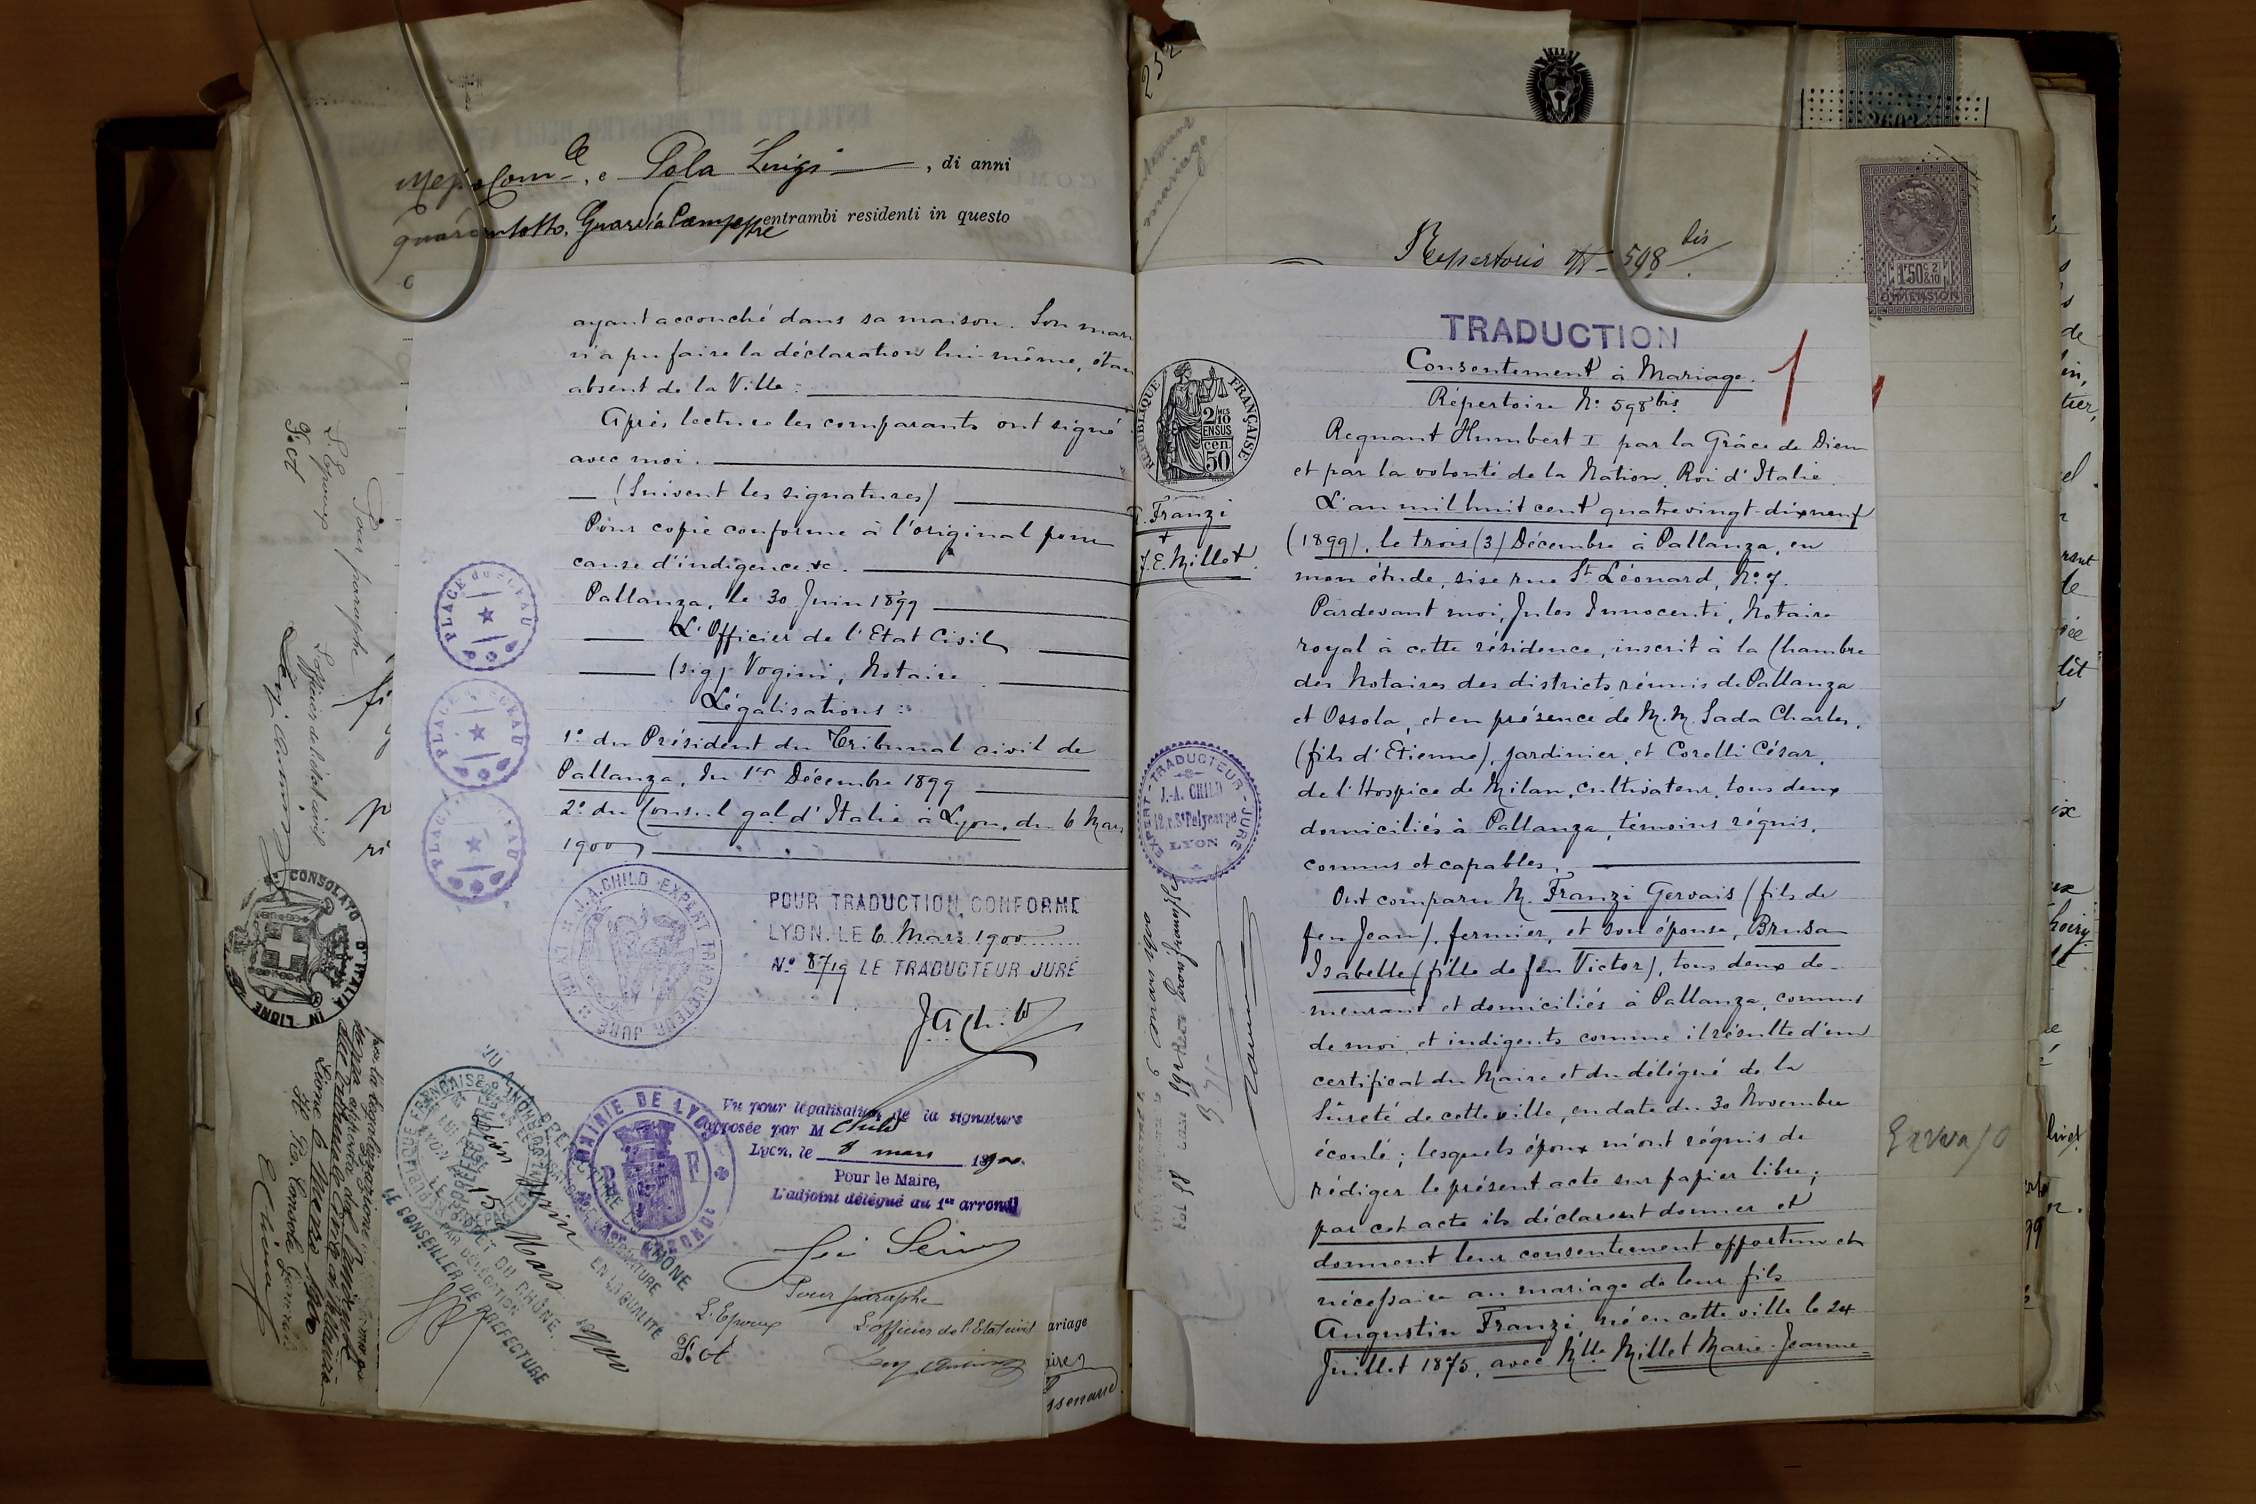 e Pola Luigi, di anni
quarantotto, Guardia Campestre entrambi residenti in questo
ayant accouché dans sa maison. Son mari
n'a pu faire la déclaration lui-même, étan
absent de la Ville :
Après lecture les comparants ont signé
avec moi.
(Suivent les signatures)
Pour copie conforme à l'original pour
cause d'indigence &c.
Pallanza, le 30 Juin 1899
L'Officier de l'Etat Civil
(sig) Vogini, Notaire
Légalisations :
1º du Président du Tribunal civil de
Pallanza, du 1er Décembre 1899
2º du Consul gal d'Italie à Lyon, du 6 Mars
1900
PLACE du SCEAU
PLACE du SCEAU
PLACE du SCEAU
J.A. CHILD EXPERT TRADUCTEUR JURÉ
POUR TRADUCTION CONFORME
LYON. LE 6 Mars 1900
Nº 8719 LE TRADUCTEUR JURÉ
J A Child
MAIRIE DE LYON
Vu pour légalisation de la signature
apposée par M Child
Lyon, le 8 mars 1900.
Pour le Maire,
L'adjoint délégué au 1er arrondt
Pour paraphe
L'Epoux
L'officier de l'Etat civil
F. A
15 Mars 1900
LE CONSEILLER DE PRÉFECTURE
Pour paraphe
L'Epoux
F. A
L'officier de l'état civil
Rº CONSOLATO D'ITALIA IN LIONE
Lione 6 Marzo 1900
Il R. Console Generale
ariage
252
mariage
Repertorio Nº 598 bis
1F50c 2/10
DIMENSION
TRADUCTION
Consentement à Mariage.
1
Répertoire Nº 598 bis
RÉPUBLIQUE FRANÇAISE
2/10 EN SUS
50 cen.
Regnant Humbert I par la Grâce de Dieu
et par la volonté de la Nation Roi d'Italie.
L'an mil huit cent quatrevingt-dixneuf
(1899), le trois (3) Décembre à Pallanza, en
mon étude, sise rue St Léonard, Nº 7.
Pardevant moi, Jules Innocenti, Notaire
royal à cette résidence, inscrit à la Chambre
des Notaires des districts réunis de Pallanza
et Ossola, et en présence de M.M. Sada Charles,
(fils d'Etienne), jardinier, et Corelli César,
de l'Hospice de Milan, cultivateur, tous deux
domiciliés à Pallanza, témoins réquis,
connus et capables.
Ont comparu M. Franzi Gervais (fils de
feu Jean), fermier, et son épouse, Brusa
Isabelle (fille de feu Victor), tous deux de-
meurant et domiciliés à Pallanza, connus
de moi, et indigents comme il résulte d'un
certificat du Maire et du délégué de la
Sûreté de cette ville, en date du 30 Novembre
écoulé ; lesquels époux m'ont réquis de
rédiger le présent acte sur papier libre ;
par cet acte ils déclarent donner et
donnent leur consentement opportun et
nécessaire au mariage de leur fils
Augustin Franzi né en cette ville le 24
Juillet 1875, avec Mlle Millet Marie-Jeanne=
Franzi
+
J. E. Millet.
EXPERT-TRADUCTEUR-JURÉ
J.-A. CHILD
12, r. St Polycarpe
LYON
6 mars 1900